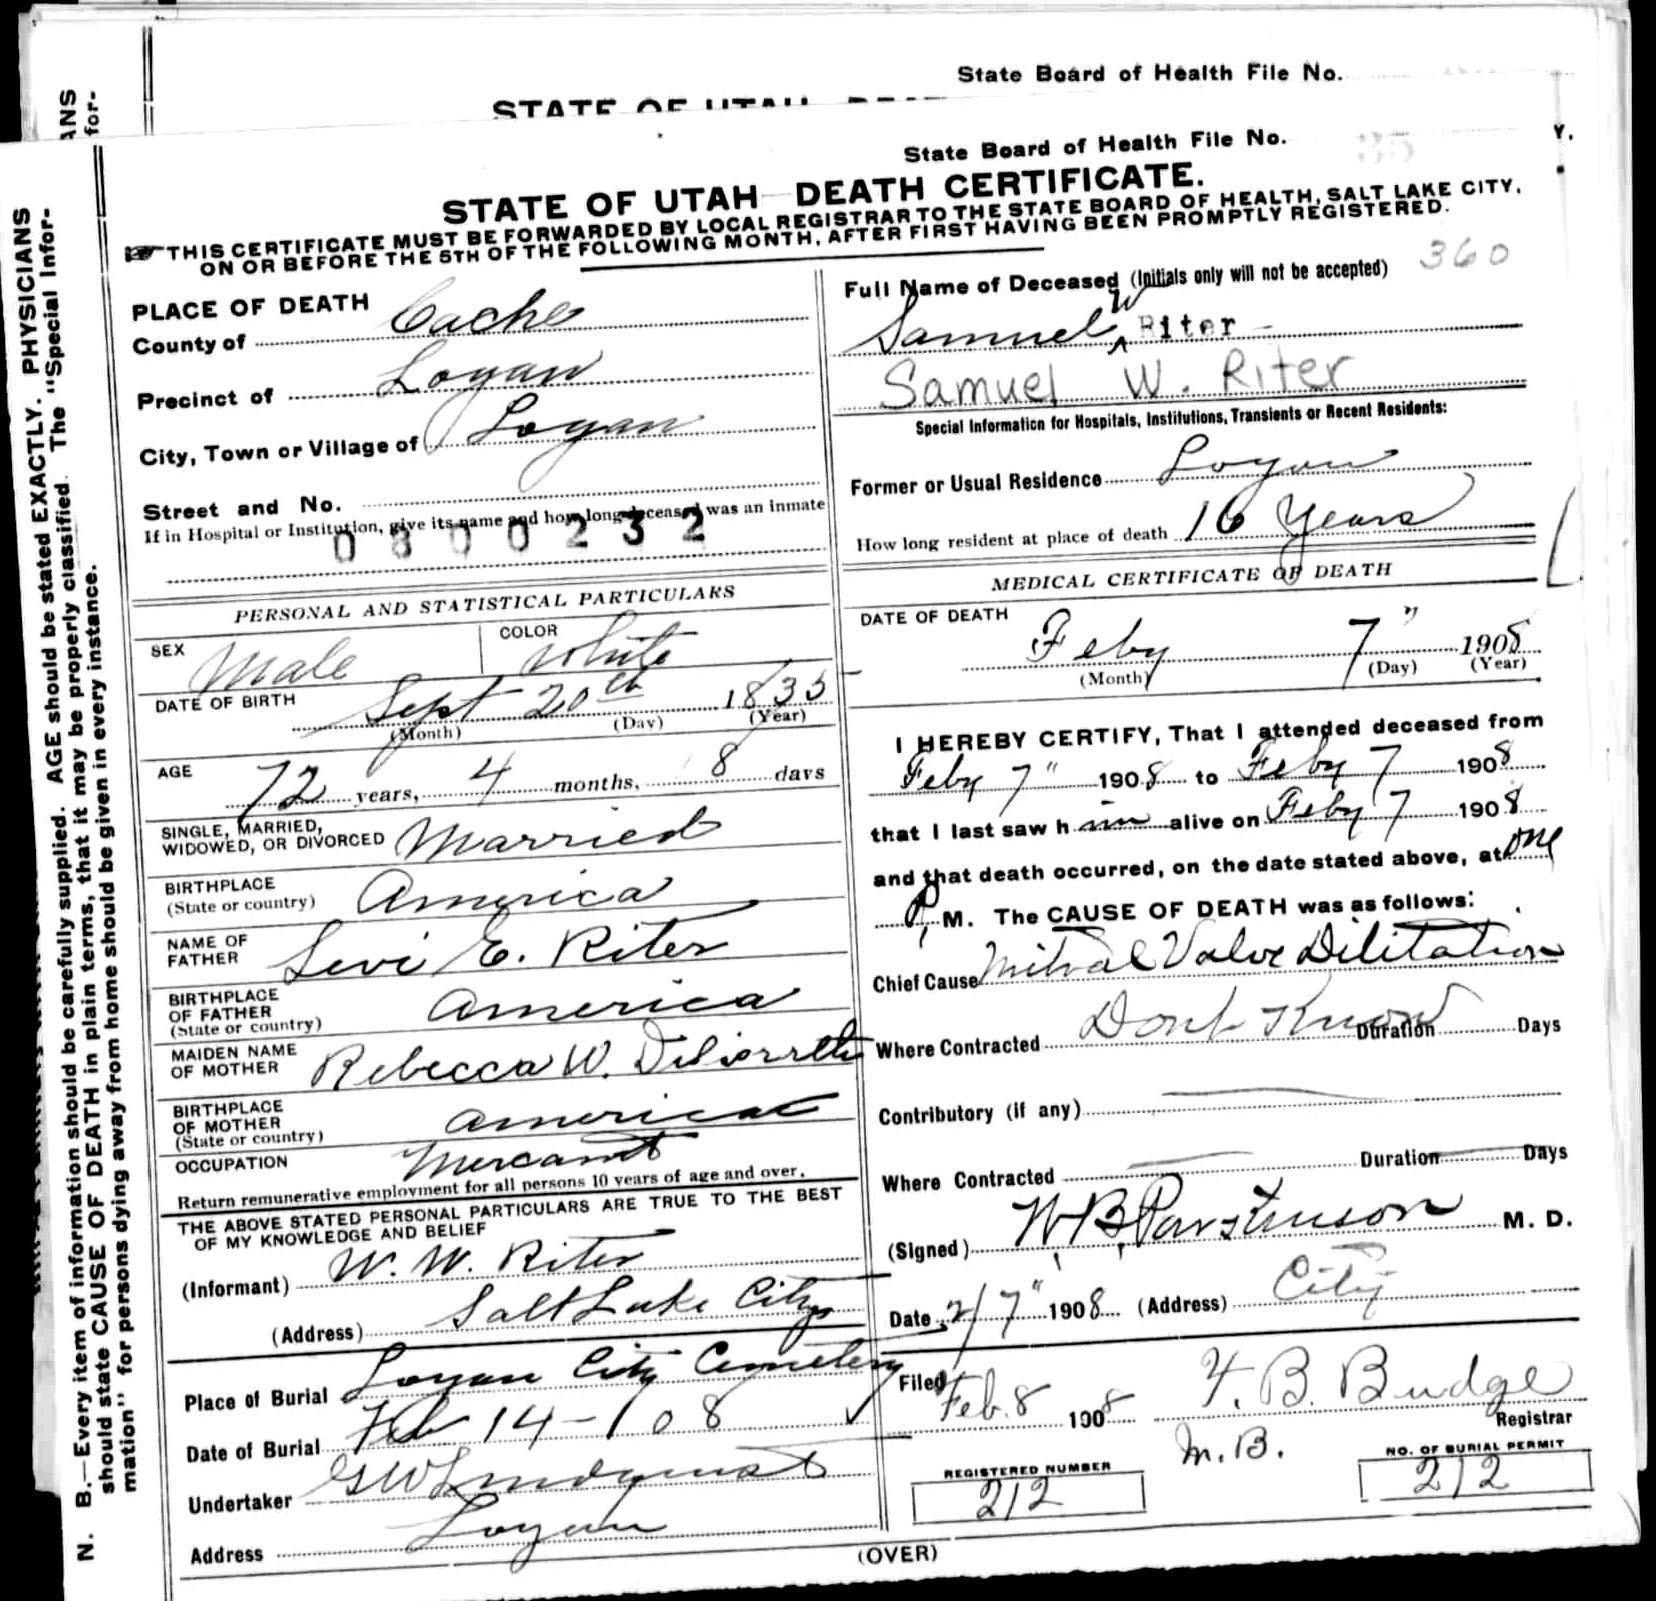 State Board of Health File No.
State Board of Health File No. 35
STATE OF UTAH—DEATH CERTIFICATE.
THIS CERTIFICATE MUST BE FORWARDED BY LOCAL REGISTRAR TO THE STATE BOARD OF HEALTH, SALT LAKE CITY,
ON OR BEFORE THE 5TH OF THE FOLLOWING MONTH, AFTER FIRST HAVING BEEN PROMPTLY REGISTERED.
360
PLACE OF DEATH
County of Cache
Precinct of Logan
City, Town or Village of Logan
Street and No.
If in Hospital or Institution, give its name and how long deceased was an inmate
0800232
PERSONAL AND STATISTICAL PARTICULARS
SEX Male COLOR White
DATE OF BIRTH Sept 20th 1835
(Month) (Day) (Year)
AGE 72 years, 4 months, 8 days
SINGLE, MARRIED,
WIDOWED, OR DIVORCED Married
BIRTHPLACE
(State or country) America
NAME OF
FATHER Levi E. Riter
BIRTHPLACE
OF FATHER
(State or country) America
MAIDEN NAME
OF MOTHER Rebecca W.
BIRTHPLACE
OF MOTHER
(State or country) America
OCCUPATION Mercant
Return remunerative employment for all persons 10 years of age and over.
THE ABOVE STATED PERSONAL PARTICULARS ARE TRUE TO THE BEST
OF MY KNOWLEDGE AND BELIEF
(Informant) W. W. Riter
(Address) Salt Lake City
Place of Burial Logan City Cemetery
Date of Burial Feb 14-108
Undertaker GW Lindquist
Address Logan
Full Name of Deceased (Initials only will not be accepted)
Samuel W Riter
Samuel W. Riter
Special Information for Hospitals, Institutions, Transients or Recent Residents:
Former or Usual Residence Logan
How long resident at place of death 16 Years
MEDICAL CERTIFICATE OF DEATH
DATE OF DEATH
Feby 7" 1908
(Month) (Day) (Year)
I HEREBY CERTIFY, That I attended deceased from
Feby 7" 1908 to Feby 7 1908
that I last saw him alive on Feby 7 1908
and that death occurred, on the date stated above, at one
P. M. The CAUSE OF DEATH was as follows:
Chief Cause Mitral Valve Dilitation
Where Contracted Dont Know Duration Days
Contributory (if any)
Where Contracted Duration Days
(Signed) W. B. Parkinson M. D.
Date 2/7" 1908 (Address) City
Filed Feb. 8 1908 F. B. Budge
Registrar
M. B.
REGISTERED NUMBER
212
NO. OF BURIAL PERMIT
212
(OVER)
N. B.—Every item of information should be carefully supplied. AGE should be stated EXACTLY. PHYSICIANS
should state CAUSE OF DEATH in plain terms, that it may be properly classified. The "Special Infor-
mation" for persons dying away from home should be given in every instance.